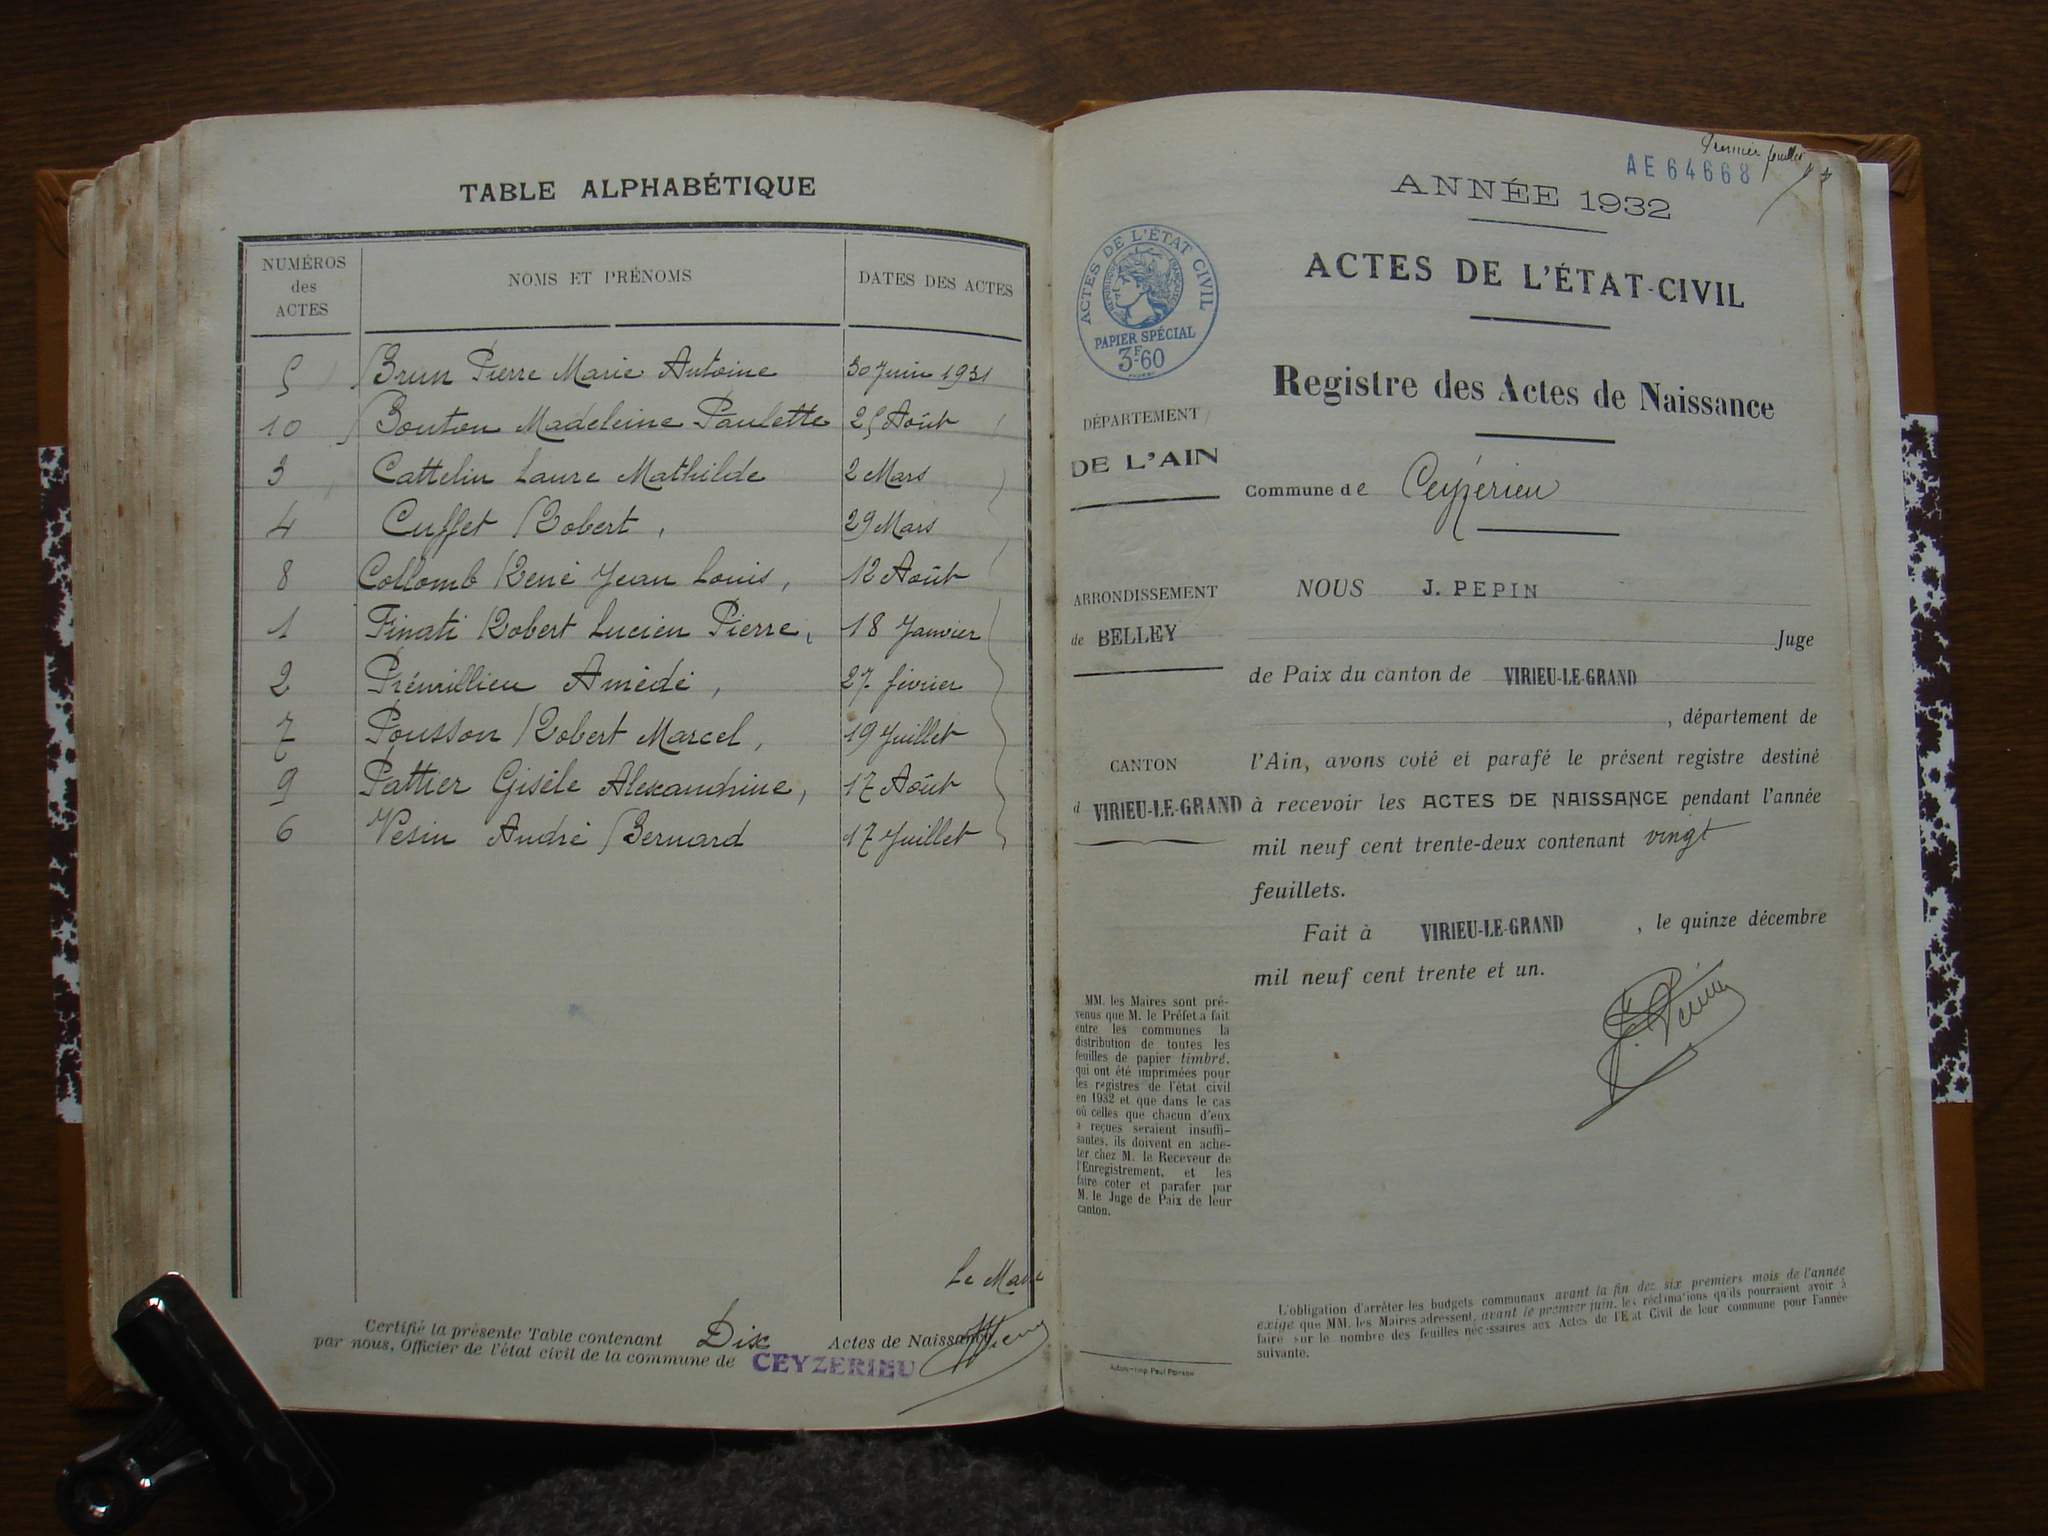 TABLE ALPHABÉTIQUE
NUMÉROS des ACTES NOMS ET PRÉNOMS DATES DES ACTES
5 Brun Pierre Marie Antoine 30 Juin 1931
10 Bouton Madeleine Paulette 25 Août
3 Cattelin Laure Mathilde 2 Mars
4 Cuffet Robert, 29 Mars
8 Collomb René Jean Louis, 12 Août
1 Finati Robert Lucien Pierre, 18 Janvier
2 Prémillieu Amédé, 27 février
7 Pousson Robert Marcel, 19 Juillet
9 Pattier Gisèle Alexandrine, 17 Août
6 Vesin André Bernard 17 Juillet
Le Maire
Certifié la présente Table contenant Dix Actes de Naissance
par nous, Officier de l'état civil de la commune de CEYZERIEU
Premier feuillet
AE 64668
ANNÉE 1932
ACTES DE L'ÉTAT CIVIL
RÉPUBLIQUE FRANÇAISE
PAPIER SPÉCIAL
3F60
ACTES DE L'ÉTAT-CIVIL
Registre des Actes de Naissance
DÉPARTEMENT
DE L'AIN
Commune de Ceyzérieu
ARRONDISSEMENT
de BELLEY
CANTON
d VIRIEU-LE-GRAND
NOUS J. PEPIN
Juge
de Paix du canton de VIRIEU-LE-GRAND
, département de
l'Ain, avons coté et parafé le présent registre destiné
à recevoir les ACTES DE NAISSANCE pendant l'année
mil neuf cent trente-deux contenant vingt
feuillets.
Fait à VIRIEU-LE-GRAND , le quinze décembre
mil neuf cent trente et un.
J. Pépin
MM. les Maires sont pré-
venus que M. le Préfet a fait
entre les communes la
distribution de toutes les
feuilles de papier timbré,
qui ont été imprimées pour
les registres de l'état civil
en 1932 et que dans le cas
où celles que chacun d'eux
a reçues seraient insuffi-
santes, ils doivent en ache-
ter chez M. le Receveur de
l'Enregistrement, et les
faire coter et parafer par
M. le Juge de Paix de leur
canton.
L'obligation d'arrêter les budgets communaux avant la fin des six premiers mois de l'année
exige que MM. les Maires adressent, avant le premier juin, les réclamations qu'ils pourraient avoir à
faire sur le nombre des feuilles nécessaires aux Actes de l'Etat Civil de leur commune pour l'année
suivante.